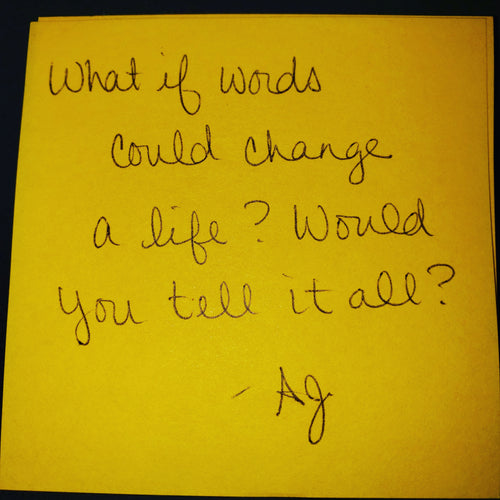 What if words
could change
a life? Would
you tell it all?
- AJ